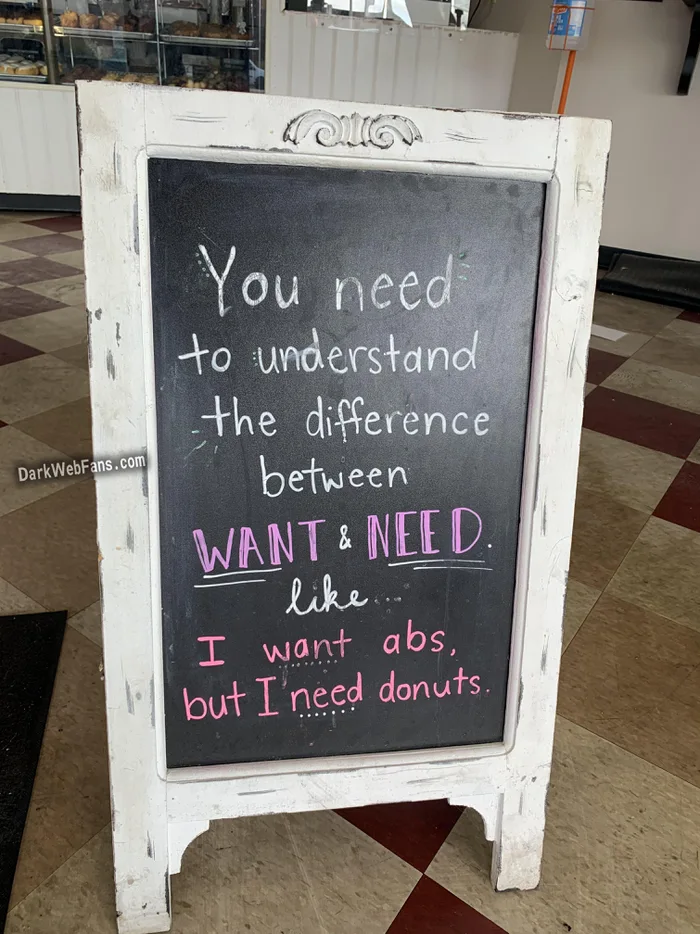 You need
to understand
the difference
between
WANT & NEED.
like...
I want abs,
but I need donuts.
DarkWebFans.com